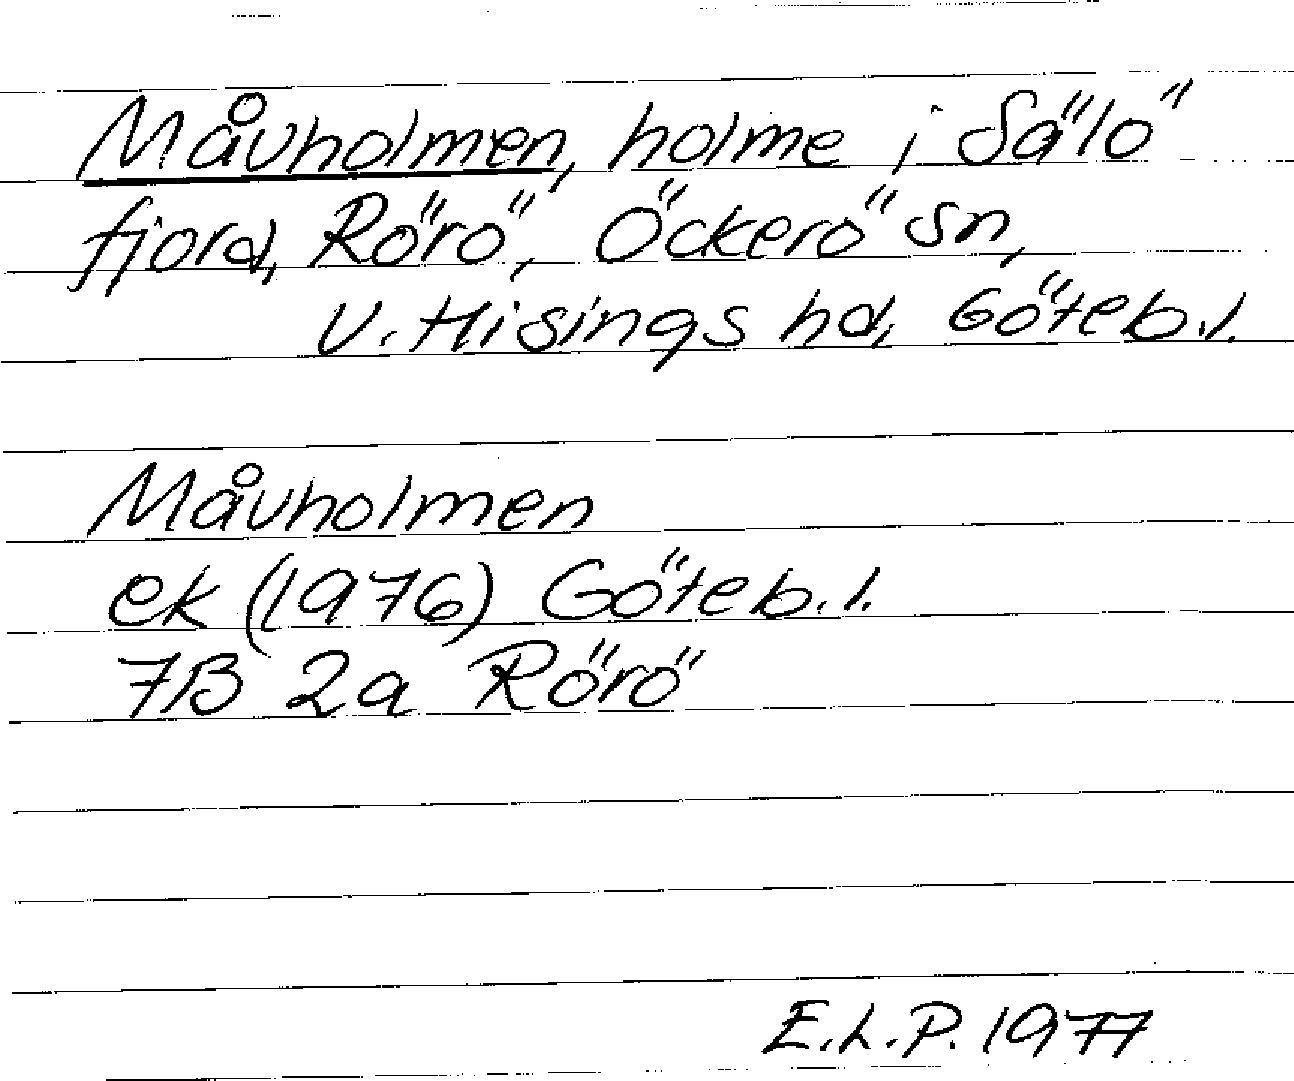 Måvholmen, holme i Sälö
fjord, Rörö, Öckerö sn,
V. Hisings hd, Göteb.l.
Måvholmen
ek (1976) Göteb.l.
7B 2a Rörö
E.L.P. 1977